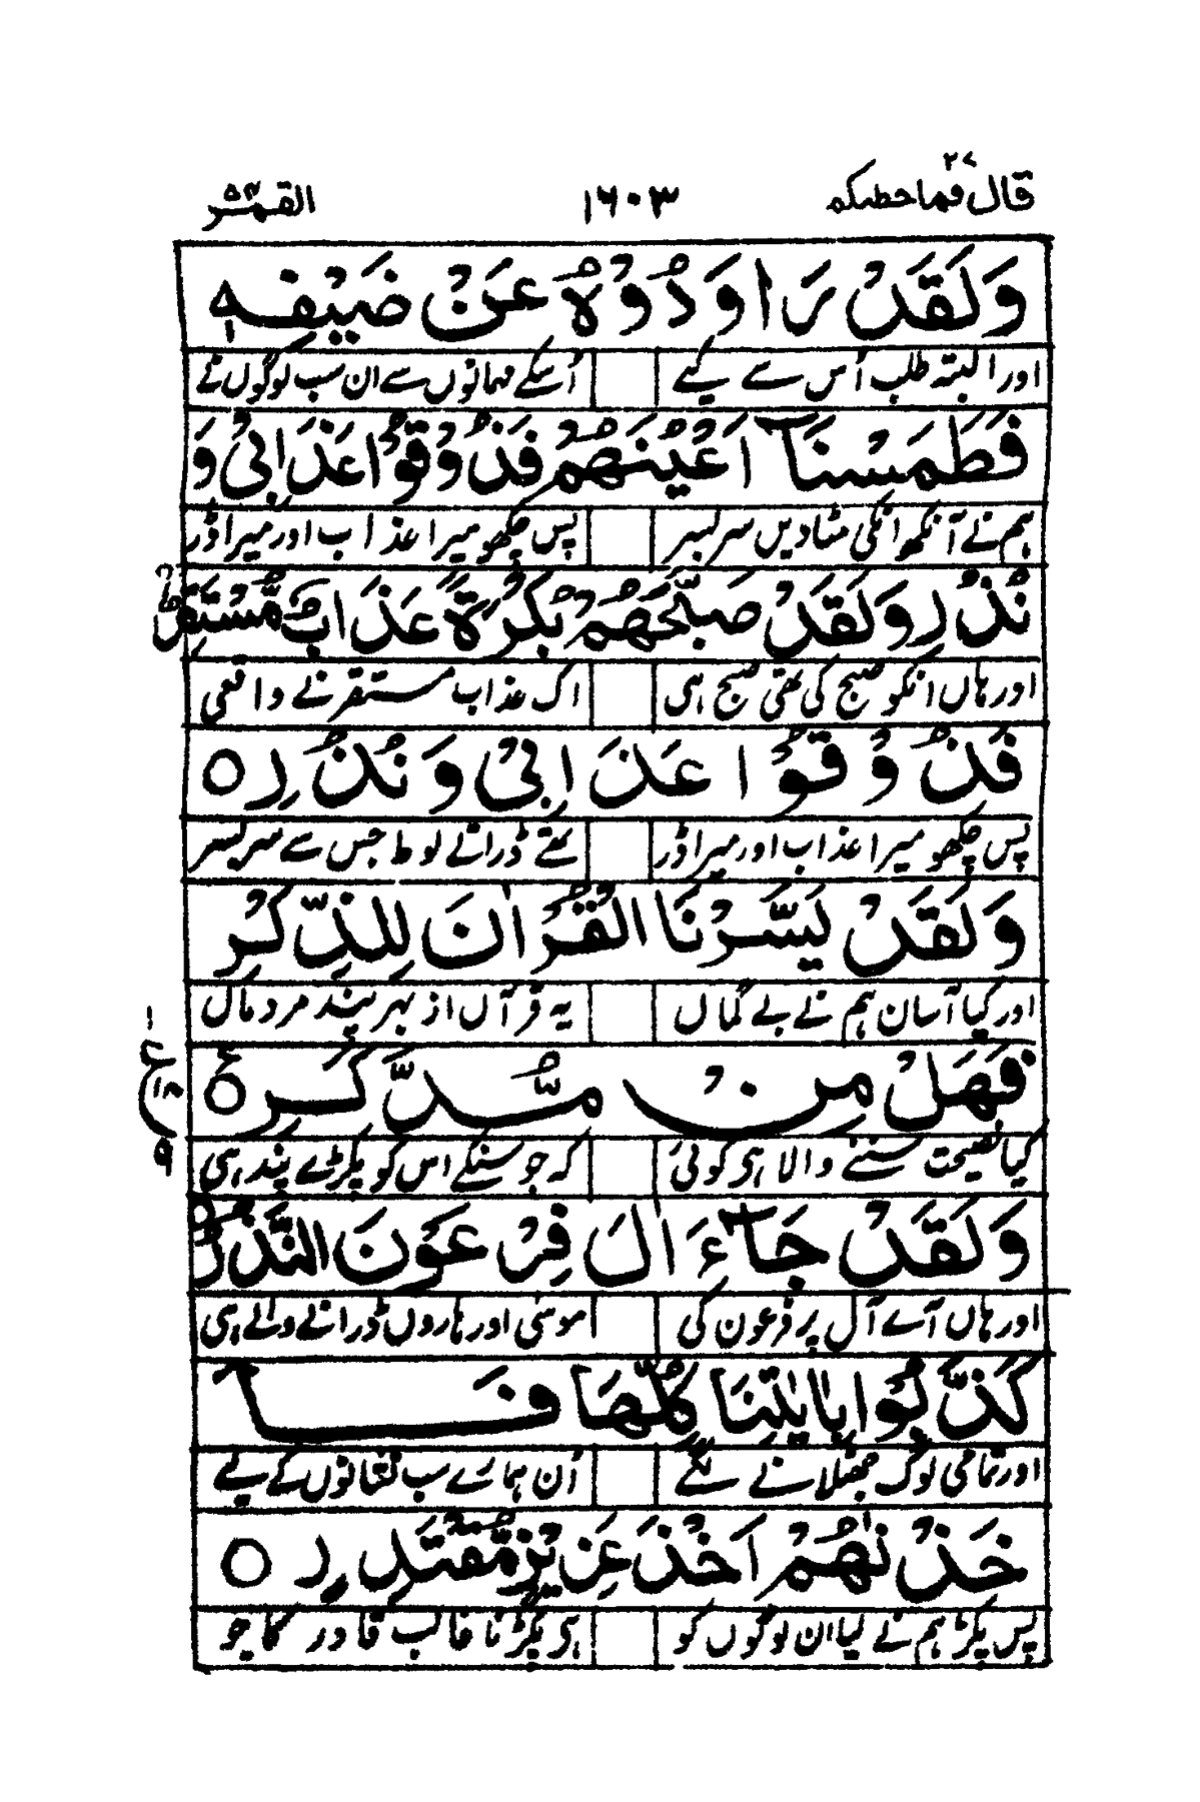 قال فما خطبکم ۲۷
۱۶۰۳
القمر ۵۴
وَلَقَدْ رَاوَدُوْهُ عَنْ ضَيْفِهٖ
اور البتہ طلب اُس سے کیے اُسکے مہمانوں سے ان سب لوگوں نے
فَطَمَسْنَآ اَعْيُنَهُمْ فَذُوْقُوْا عَذَابِیْ وَ
ہم نے آنکھو انکی مٹادیں سربسر پس چکھو میرا عذاب اور میرا ڈر
نُذُرِ وَلَقَدْ صَبَّحَهُمْ بُكْرَةً عَذَابٌ مُّسْتَقِرٌّ
اور ہاں انکو صبح کی تھی صبح ہی اک عذاب مستقر نے واقعی
فَذُوْقُوْا عَذَابِیْ وَنُذُرِ ○
پس چکھو میرا عذاب اور میرا ڈر تھے ڈراتے لوط جس سے سربسر
وَلَقَدْ يَسَّرْنَا الْقُرْاٰنَ لِلذِّكْرِ
اور کیا آسان ہم نے بے گماں یہ قرآں از بہر پند مردماں
فَهَلْ مِنْ مُّدَّكِرٍ ○ ع
۱
ع
۱۸
۹
کیا نصیحت سننے والا ہی کوئی کہ جو سنکے اس کو پکڑے پند ہی
وَلَقَدْ جَآءَ اٰلَ فِرْعَوْنَ النُّذُرُ
اور ہاں آے آل پر فرعون کی موسیٰ اور ہاروں ڈرانے والے ہی
كَذَّبُوْا بِاٰيٰتِنَا كُلِّهَا فَا
اور تمامی لوگ جھٹلانے لگے اُن ہمارے سب نشانوں کے لیے
خَذْنٰهُمْ اَخْذَ عَزِيْزٍ مُّقْتَدِرٍ ○
پس پکڑ ہم نے لیا ان لوگوں کو ہی پکڑنا غالب قادر کا جو